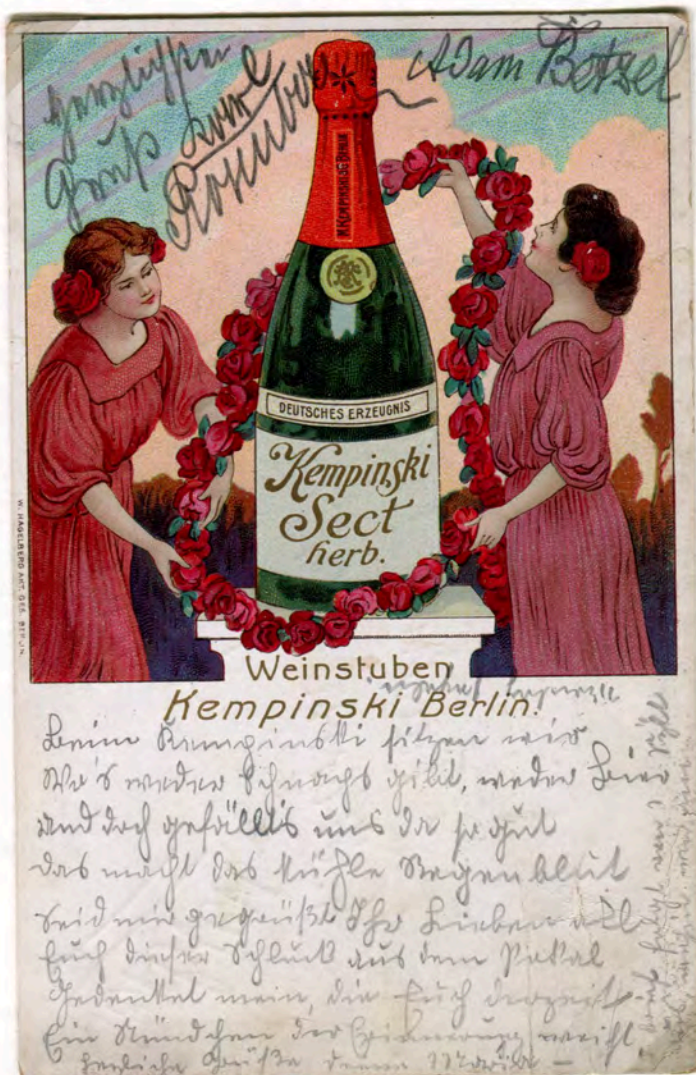 Herzlichsten
Gruß Karl
Rosenber
Adam Betzel
M. KEMPINSKI & Co BERLIN
DEUTSCHES ERZEUGNIS
Kempinski
Sect
herb.
W. HAGELBERG AKT. GES. BERLIN.
Weinstuben
Kempinski Berlin.
Beim Kempinski sitzen wir
Wo's weder Schnaps gibt, weder Bier
Und doch gefällt's uns da so gut
Das macht das kühle Regenblut
Seid mir gegrüßt Ihr Lieben all
Euch dieser Schluck aus dem Pokal
Gedenket mein, die Euch derzeit
Ein Stündchen der Erinnerung weiht
Herzliche Grüße